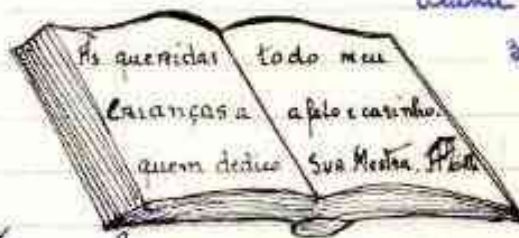 Às queridas
crianças a
quem dedico
todo meu
afeto e carinho.
Sua Mestra.